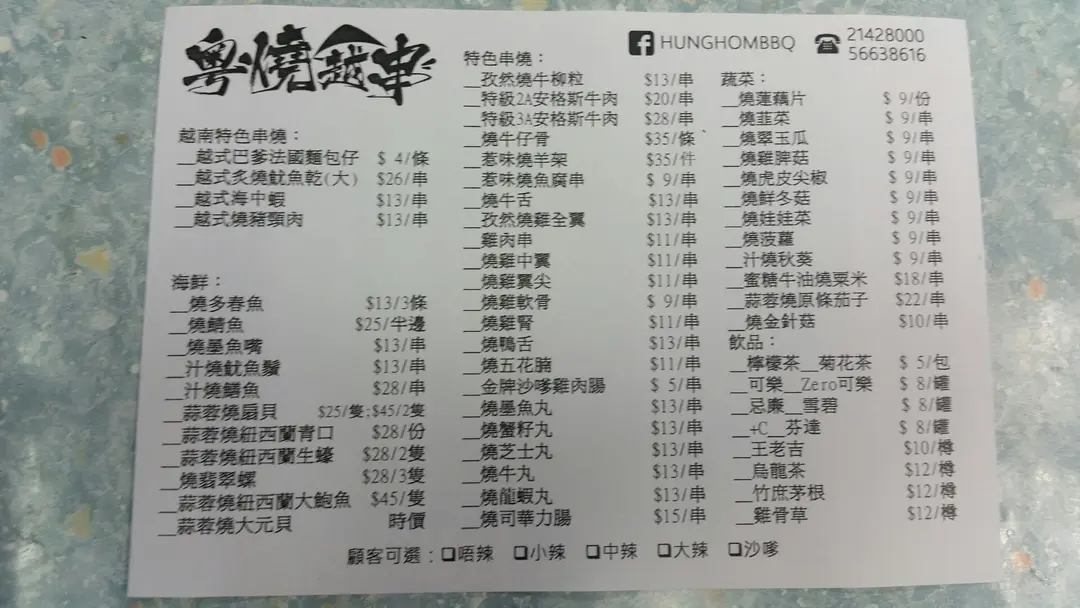 粵燒越串
HUNGHOMBBQ
21428000
56638616
越南特色串燒：
__越式巴爹法國麵包仔 $ 4/條
__越式炙燒魷魚乾(大) $26/串
__越式海中蝦 $13/串
__越式燒豬頸肉 $13/串
海鮮：
__燒多春魚 $13/3條
__燒鯖魚 $25/半邊
__燒墨魚嘴 $13/串
__汁燒魷魚鬚 $13/串
__汁燒鱔魚 $28/串
__蒜蓉燒扇貝 $25/隻;$45/2隻
__蒜蓉燒紐西蘭青口 $28/份
__蒜蓉燒紐西蘭生蠔 $28/2隻
__燒翡翠螺 $28/3隻
__蒜蓉燒紐西蘭大鮑魚 $45/隻
__蒜蓉燒大元貝 時價
特色串燒：
__孜然燒牛柳粒 $13/串
__特級2A安格斯牛肉 $20/串
__特級3A安格斯牛肉 $28/串
__燒牛仔骨 $35/條
__惹味燒羊架 $35/件
__惹味燒魚腐串 $ 9/串
__燒牛舌 $13/串
__孜然燒雞全翼 $13/串
__雞肉串 $11/串
__燒雞中翼 $11/串
__燒雞翼尖 $11/串
__燒雞軟骨 $ 9/串
__燒雞腎 $11/串
__燒鴨舌 $13/串
__燒五花腩 $11/串
__金牌沙嗲雞肉腸 $ 5/串
__燒墨魚丸 $13/串
__燒蟹籽丸 $13/串
__燒芝士丸 $13/串
__燒牛丸 $13/串
__燒龍蝦丸 $13/串
__燒司華力腸 $15/串
蔬菜：
__燒蓮藕片 $ 9/份
__燒韮菜 $ 9/串
__燒翠玉瓜 $ 9/串
__燒雞脾菇 $ 9/串
__燒虎皮尖椒 $ 9/串
__燒鮮冬菇 $ 9/串
__燒娃娃菜 $ 9/串
__燒菠蘿 $ 9/串
__汁燒秋葵 $ 9/串
__蜜糖牛油燒粟米 $18/串
__蒜蓉燒原條茄子 $22/串
__燒金針菇 $10/串
飲品：
__檸檬茶__菊花茶 $ 5/包
__可樂__Zero可樂 $ 8/罐
__忌廉__雪碧 $ 8/罐
__+C__芬達 $ 8/罐
__王老吉 $10/樽
__烏龍茶 $12/樽
__竹庶茅根 $12/樽
__雞骨草 $12/樽
顧客可選：❑唔辣 ❑小辣 ❑中辣 ❑大辣 ❑沙嗲